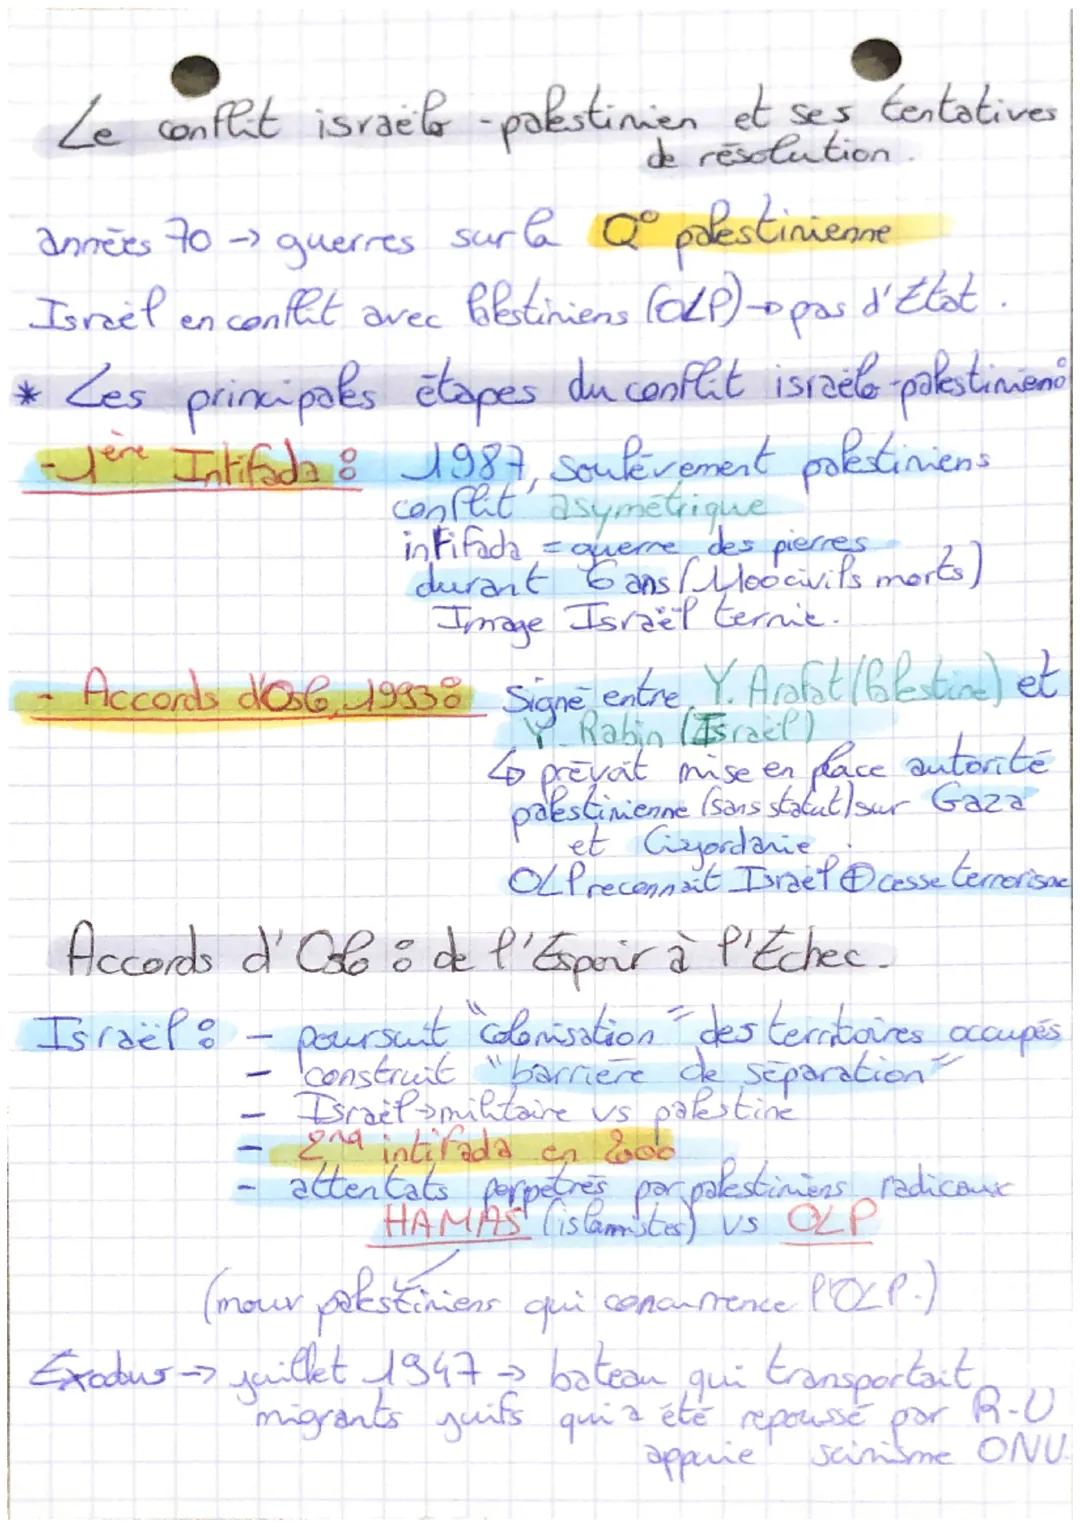 Le conflit israëlo-palestinien et ses tentatives
de résolution.
années 70 -> guerres sur la Q° palestinienne
Israël en conflit avec Palestiniens (OLP) -> pas d'État.
* Les principales étapes du conflit israëlo-palestinien:
- 1ère Intifada : 1987, soulèvement palestiniens
conflit asymétrique
intifada = guerre des pierres
durant 6 ans (1100 civils morts)
Image Israël ternie.
- Accords d'Oslo, 1993 : Signé entre Y. Arafat (Palestine) et
Y. Rabin (Israël)
↳ prévoit mise en place autorité
palestinienne (sans statut) sur Gaza
et Cisjordanie.
OLP reconnaît Israël ⊕ cesse terrorisme
Accords d'Oslo : de l'Espoir à l'Échec.
Israël : - poursuit "colonisation" des territoires occupés
- construit "barrière de séparation"
- Israël -> militaire vs palestine
- 2nd intifada en 2000
- attentats perpétrés par palestiniens radicaux
HAMAS (islamistes) vs OLP
(mouv palestiniens qui concurrence l'OLP.)
Exodus -> juillet 1947 -> bateau qui transportait
migrants juifs qui a été repoussé par R-U
appuie sionisme ONU.